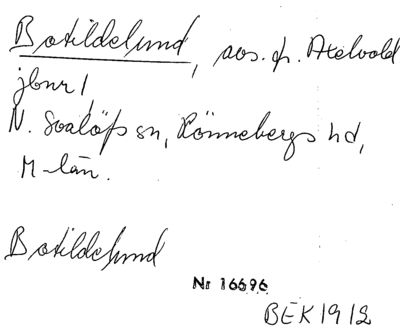 Botildelund, avs. fr. Axelvold
jbnr 1,
N. Svalöfs sn, Rönnebergs hd,
M-län.
Botildelund
Nr 16696
BEK 1912